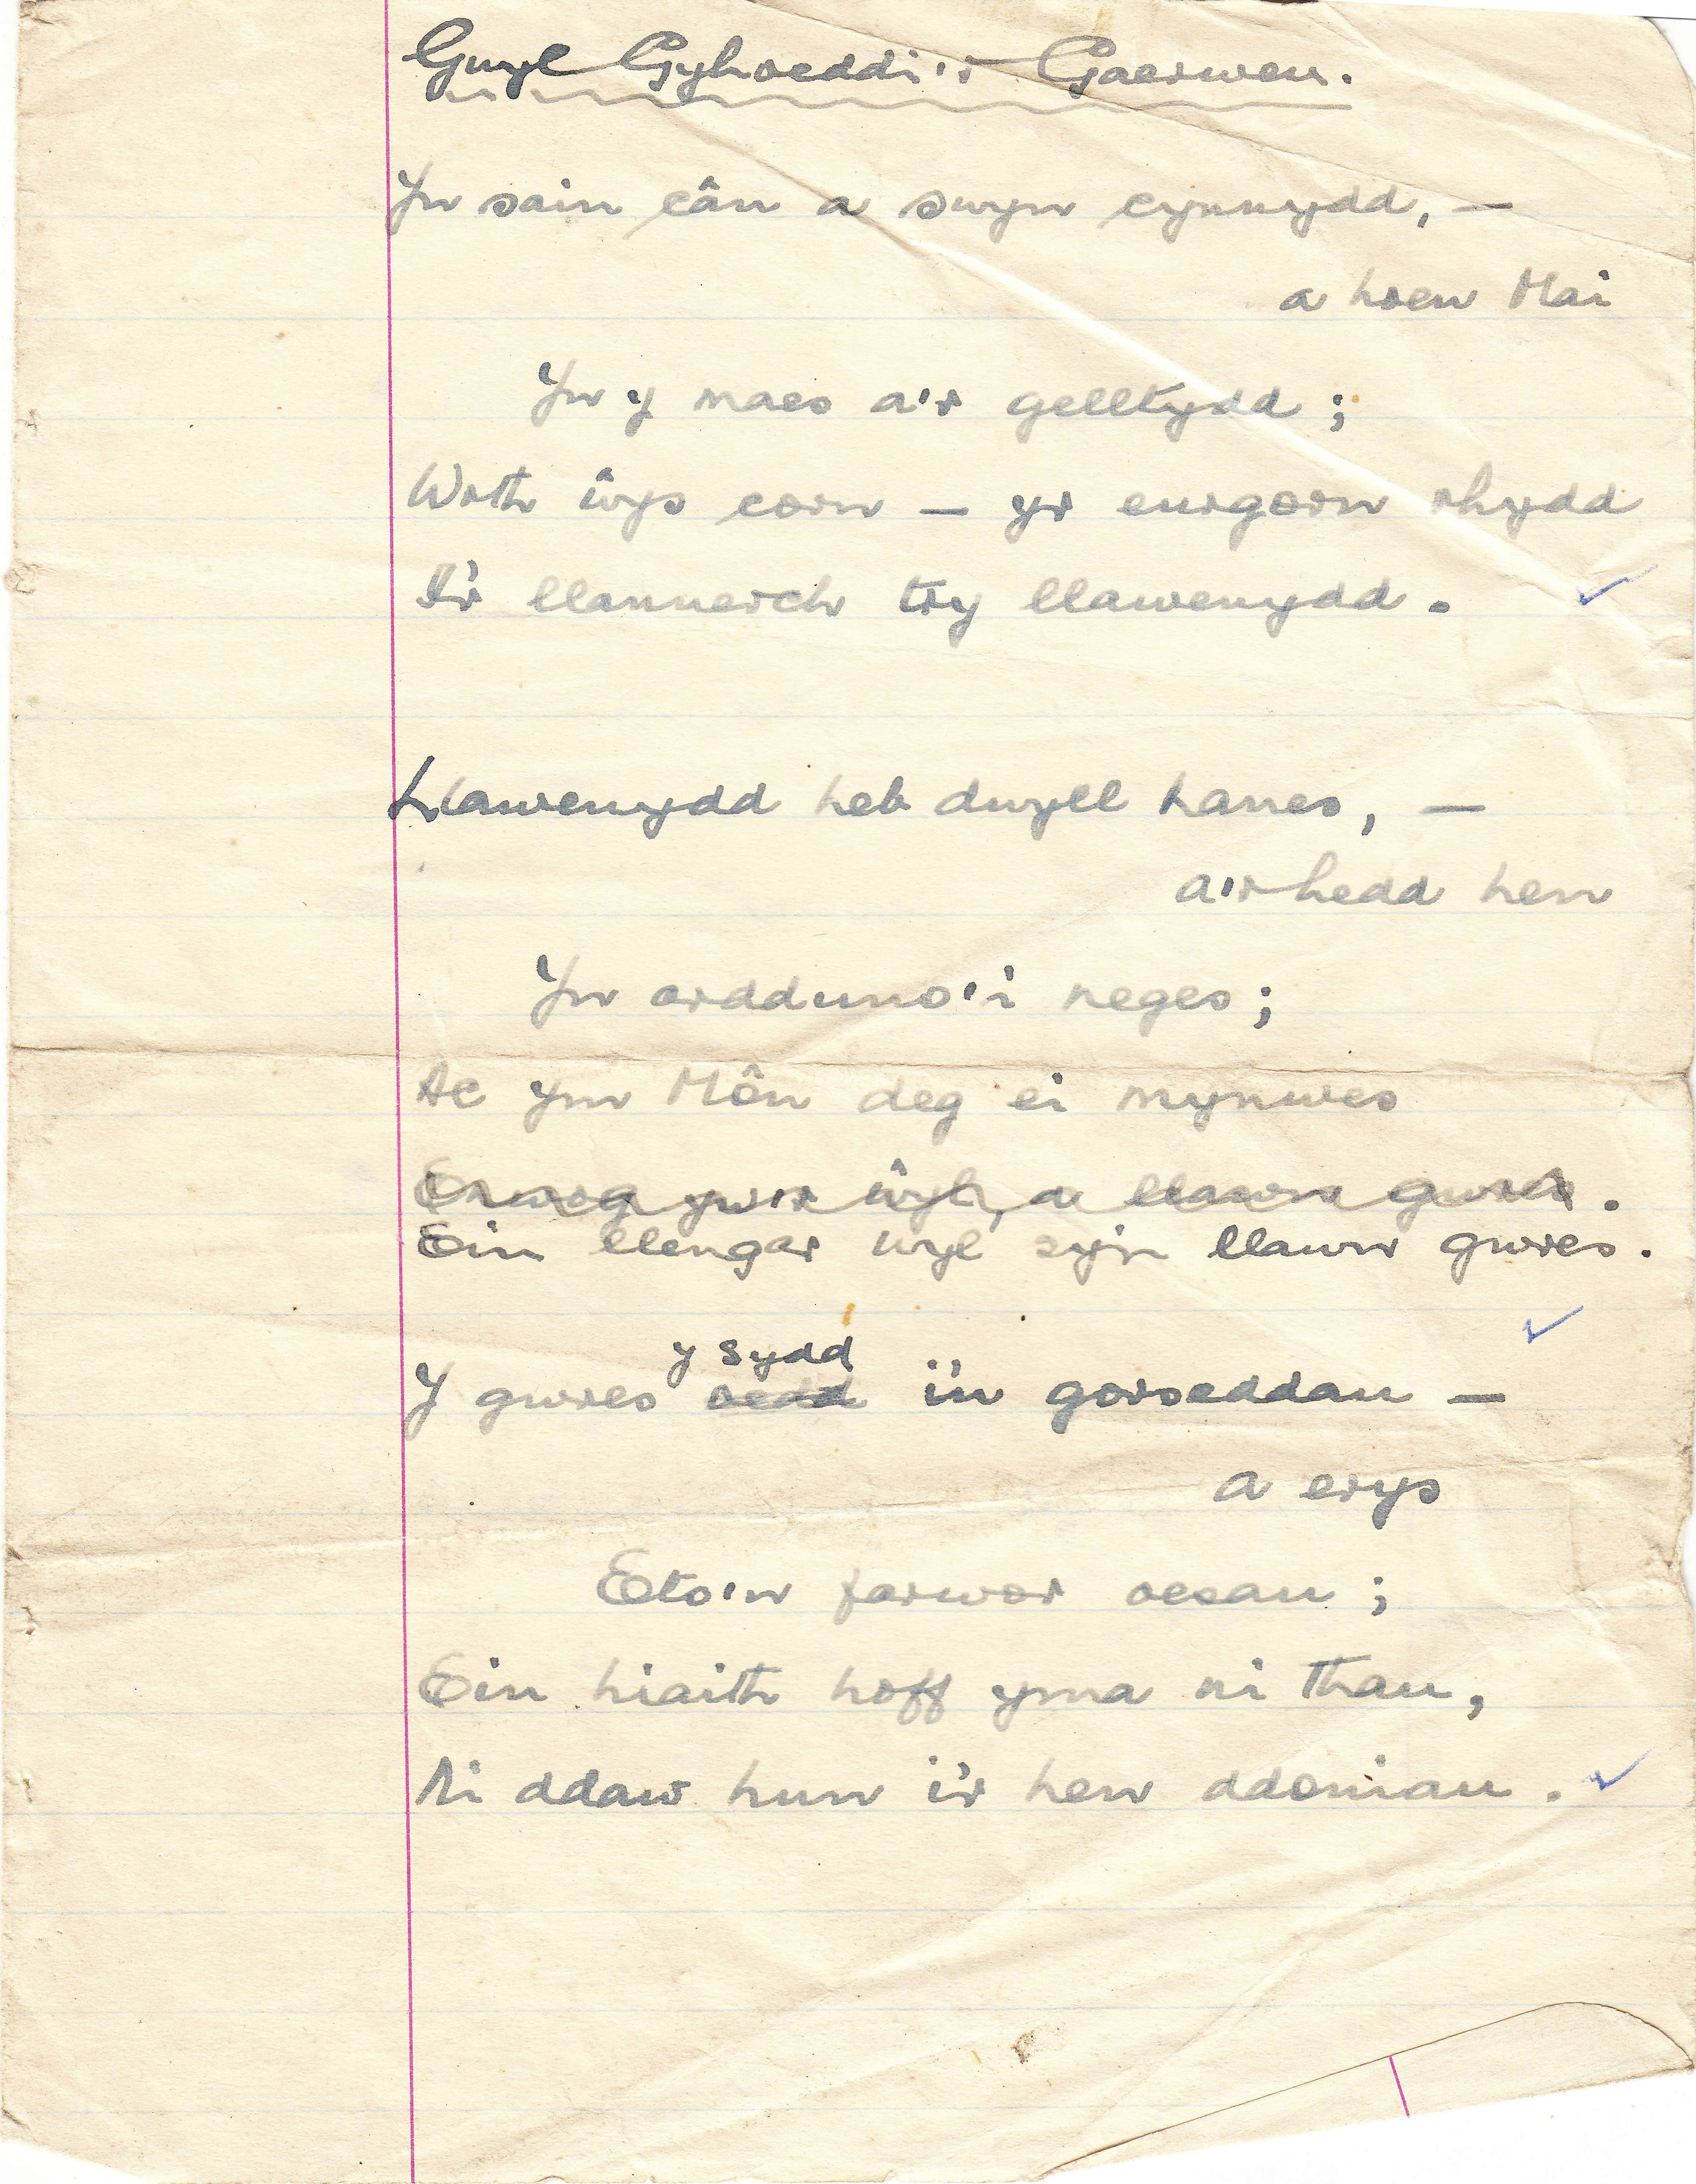 Gwyl Gyhoeddi'r Gaerwen.
Yn sain cân a swyn cynnydd, —
a hoen Mai
Yn y maes a'r gelltydd;
Wrth ŵys corn — yr eurgorn rhydd
I'r llannerch try llawenydd.
Llawenydd heb dwyll hanes, —
a'r hedd hen
Yn ordduno'i neges;
Ac ym Môn deg ei mynwes
Enwog yw'r ŵyl, a llawn gwres.
Ein llengar wyl sy'n llawn gwres.
y sydd
Y gwres oedd i'n gorseddau —
a erys
Eto'n farwor oesau;
Ein hiaith hoff yma ni thau,
Ni ddaw hun i'r hen ddoniau.